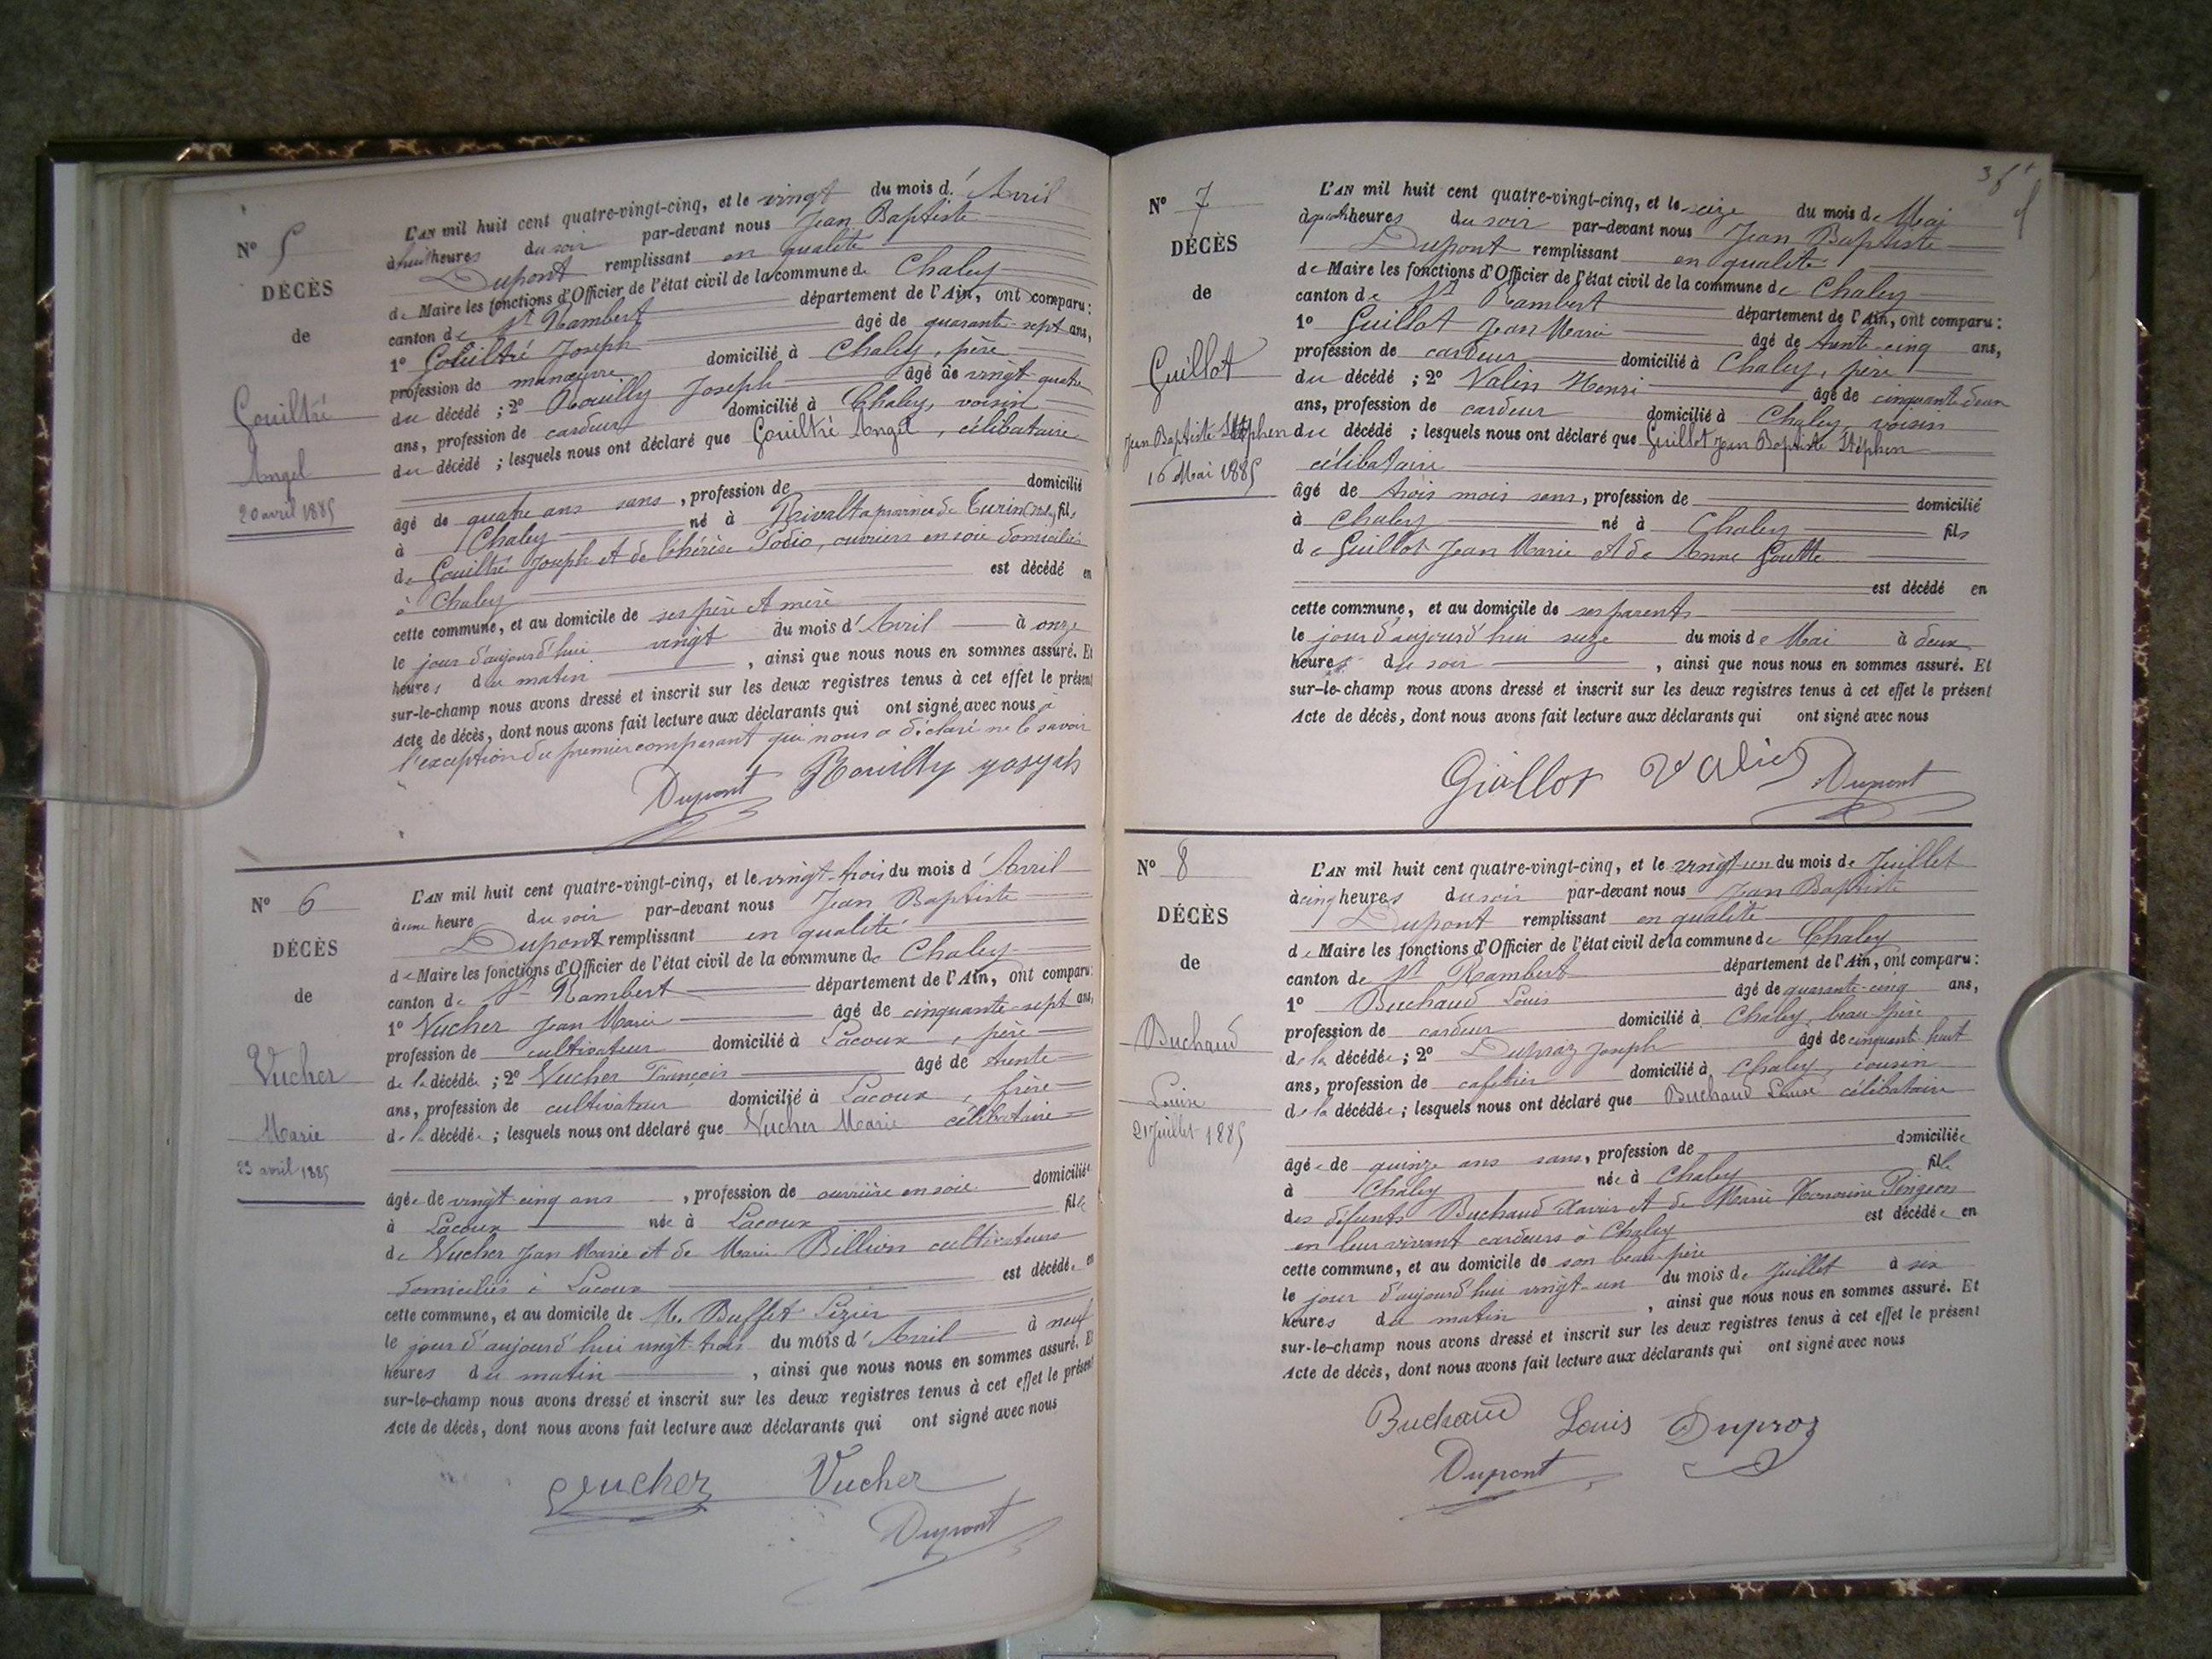 N° 5
DÉCÈS
de
Gouiltré
Angel
20 avril 1885
L'AN mil huit cent quatre-vingt-cinq, et le vingt du mois d'Avril
à huit heures du soir par-devant nous Jean Baptiste
Dupont remplissant en qualité
de Maire les fonctions d'Officier de l'état civil de la commune de Chaley
canton de St Rambert département de l'Ain, ont comparu :
1° Gouiltré Joseph âgé de quarante-sept ans,
profession de manœuvre domicilié à Chaley, père
du décédé ; 2° Rouilly Joseph âgé de vingt-quatre
ans, profession de cardeur domicilié à Chaley, voisin
du décédé ; lesquels nous ont déclaré que Gouiltré Angel, célibataire
âgé de quatre ans sans, profession de domicilié
à Chaley né à Rivalta province de Turin fils
de Gouiltré Joseph et de Thérèse Todio, ouvriers en soie domiciliés
à Chaley est décédé en
cette commune, et au domicile de ses père et mère
le jour d'aujourd'hui vingt du mois d'Avril à onze
heures du matin, ainsi que nous nous en sommes assuré. Et
sur-le-champ nous avons dressé et inscrit sur les deux registres tenus à cet effet le présent
Acte de décès, dont nous avons fait lecture aux déclarants qui ont signé avec nous à
l'exception du premier comparant qui nous a déclaré ne le savoir
Dupont Rouilly yosyph
N° 6
DÉCÈS
de
Vucher
Marie
23 avril 1885
L'AN mil huit cent quatre-vingt-cinq, et le vingt-trois du mois d'Avril
à une heure du soir par-devant nous Jean Baptiste
Dupont remplissant en qualité
de Maire les fonctions d'Officier de l'état civil de la commune de Chaley
canton de St Rambert département de l'Ain, ont comparu :
1° Vucher Jean Marie âgé de cinquante-sept ans,
profession de cultivateur domicilié à Lacoux, père
de la décédée ; 2° Vucher François âgé de trente
ans, profession de cultivateur domicilié à Lacoux, frère
de la décédée ; lesquels nous ont déclaré que Vucher Marie célibataire
âgée de vingt cinq ans, profession de ouvrière en soie domiciliée
à Lacoux née à Lacoux fille
de Vucher Jean Marie et de Marie Billion cultivateurs
domiciliés à Lacoux est décédée en
cette commune, et au domicile de M. Buffet Lézier
le jour d'aujourd'hui vingt-trois du mois d'Avril à neuf
heures du matin, ainsi que nous nous en sommes assuré. Et
sur-le-champ nous avons dressé et inscrit sur les deux registres tenus à cet effet le présent
Acte de décès, dont nous avons fait lecture aux déclarants qui ont signé avec nous
Vucher Vucher
Dupont
N° 7
DÉCÈS
de
Guillot
Jean Baptiste Stéphen
16 Mai 1885
L'AN mil huit cent quatre-vingt-cinq, et le seize du mois de Mai
à quatre heures du soir par-devant nous Jean Baptiste
Dupont remplissant en qualité
de Maire les fonctions d'Officier de l'état civil de la commune de Chaley
canton de St Rambert département de l'Ain, ont comparu :
1° Guillot Jean Marie âgé de trente-cinq ans,
profession de cardeur domicilié à Chaley, père
du décédé ; 2° Valin Henri âgé de cinquante deux
ans, profession de cardeur domicilié à Chaley, voisin
du décédé ; lesquels nous ont déclaré que Guillot Jean Baptiste Stéphen
célibataire
âgé de trois mois sans, profession de domicilié
à Chaley né à Chaley fils
de Guillot Jean Marie et de Anne Goutte
est décédé en
cette commune, et au domicile de ses parents
le jour d'aujourd'hui seize du mois de Mai à deux
heures du soir, ainsi que nous nous en sommes assuré. Et
sur-le-champ nous avons dressé et inscrit sur les deux registres tenus à cet effet le présent
Acte de décès, dont nous avons fait lecture aux déclarants qui ont signé avec nous
Giollot Valin Dupont
N° 8
DÉCÈS
de
Buchaud
Louise
21 Juillet 1885
L'AN mil huit cent quatre-vingt-cinq, et le vingt-un du mois de Juillet
à cinq heures du soir par-devant nous Jean Baptiste
Dupont remplissant en qualité
de Maire les fonctions d'Officier de l'état civil de la commune de Chaley
canton de St Rambert département de l'Ain, ont comparu :
1° Buchaud Louis âgé de quarante-cinq ans,
profession de cardeur domicilié à Chaley, beau-père
de la décédée ; 2° Dupraz Joseph âgé de cinquante huit
ans, profession de cafetier domicilié à Chaley, cousin
de la décédée ; lesquels nous ont déclaré que Buchaud Louise célibataire
âgée de quinze ans sans, profession de domiciliée
à Chaley née à Chaley fille
des défunts Buchaud Xavier et de Marie Honorine Pingeon
en leur vivant cardeurs à Chaley est décédée en
cette commune, et au domicile de son beau-père
le jour d'aujourd'hui vingt-un du mois de Juillet à six
heures du matin, ainsi que nous nous en sommes assuré. Et
sur-le-champ nous avons dressé et inscrit sur les deux registres tenus à cet effet le présent
Acte de décès, dont nous avons fait lecture aux déclarants qui ont signé avec nous
Buchaud Louis Duproz
Dupont